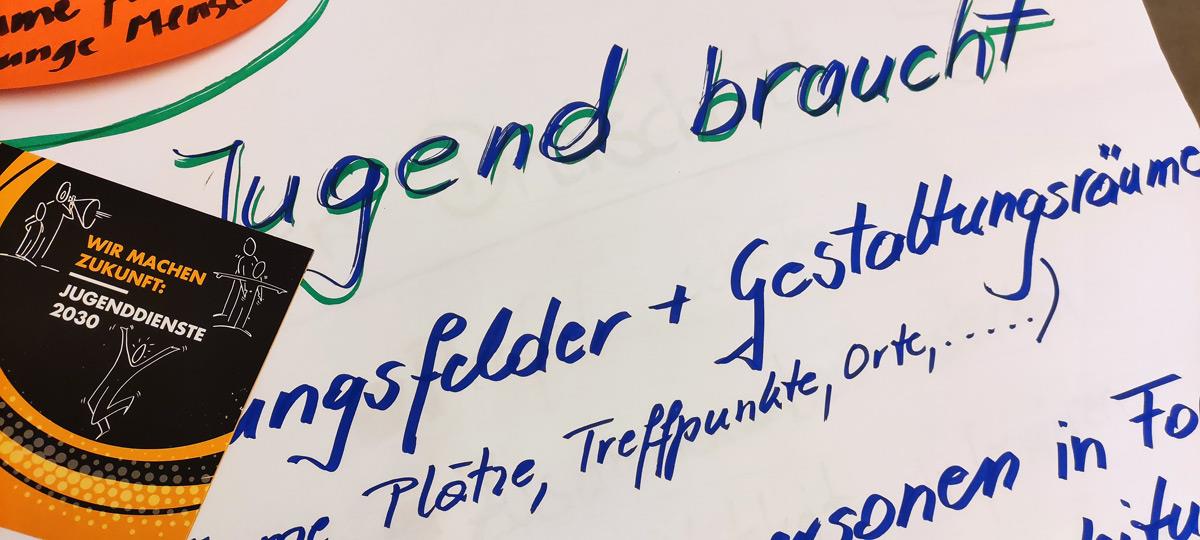 unge Mensch
Jugend braucht
WIR MACHEN
ZUKUNFT:
JUGENDDIENSTE
2030
ungsfelder + Gestaltungsräume
Plätze, Treffpunkte, Orte, ......)
ersonen in Fo